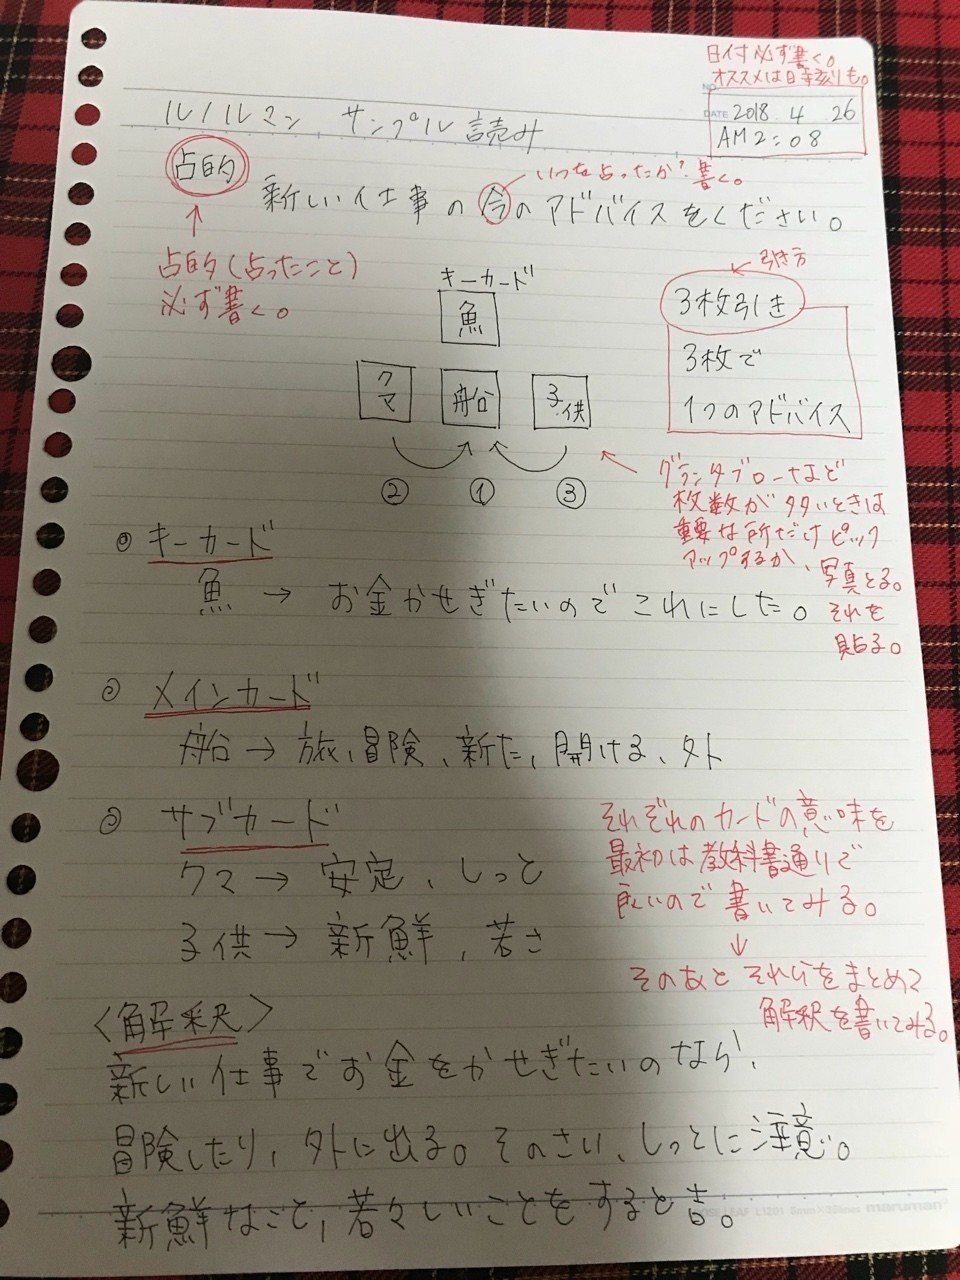 日付必ず書く。
オススメは日時刻りも。
NO.
DATE 2018 . 4 . 26
AM 2:08
ルノルマン サンプル読み
占的
いつを占ったか?書く。
新しい仕事の今のアドバイスをください。
占的(占ったこと)
必ず書く。
引き方
キーカード
魚
3枚引き
3枚で
1つのアドバイス
クマ 船 子供
② ① ③
グランタブローなど
枚数が多いときは
重要な所だけピック
アップするか、写真とる。
それを
貼る。
◎ キーカード
魚 → お金かせぎたいのでこれにした。
◎ メインカード
船 → 旅、冒険、新た、開ける、外
◎ サブカード
クマ → 安定、しっと
子供 → 新鮮、若さ
それぞれのカードの意味を
最初は教科書通りで
良いので書いてみる。
↓
そのあとそれらをまとめて
解釈を書いてみる。
〈解釈〉
新しい仕事でお金をかせぎたいのなら、
冒険したり、外に出る。そのさい、しっとに注意。
新鮮なこと、若々しいことをすると吉。
LOOSE LEAF L1201 6mm×35lines maruman